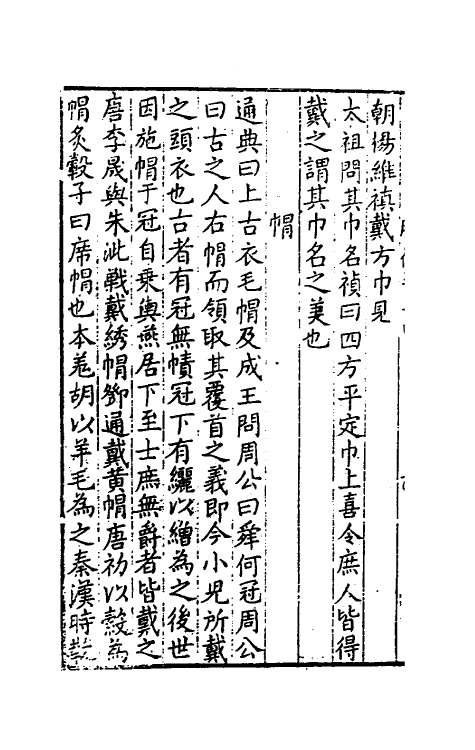 朝楊維禎戴方巾見
太祖問其巾名禎曰四方平定巾上喜令庶人皆得
戴之謂其巾名之美也
帽
通典曰上古衣毛帽及成王問周公曰舜何冠周公
曰古之人右帽而領取其覆首之義即今小兒所戴
之頭衣也古者有冠無幘冠下有纚以繒為之後世
因施帽于冠自乗輿燕居下至士庶無爵者皆戴之
唐李晟與朱泚戰戴綉帽鄧通戴黄帽唐初以縠為
帽炙轂子曰席帽也本羗胡以羊毛為之秦漢時